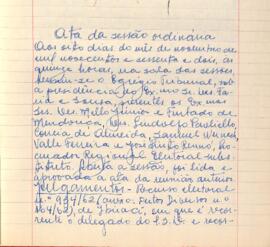 Ata da sessão ordinária
Aos oito dias do mês de novembro de
mil novecentos e sessenta e dois, às
quinze horas, na sala das sessões,
reuniu-se o Egrégio Tribunal, sob
a presidência do Exmo. Sr. Des. Faria
e Sousa, presentes os Exmos
Srs. Des. Mello Júnior e Furtado de
Mendonça, Drs. Lindolfo Paoliello,
Correia de Almeida, Samuel Werneck,
Valle Ferreira e Joaquim Ferreira, Pro-
curador Regional Eleitoral subs-
tituto. Aberta a sessão, foi lida e
aprovada a ata da reunião anterior.
Julgamentos - Recurso eleitoral
n.º 964/62 (anexo: Feitos Diversos n.º
164/62), de Ibiraci, em que é recor-
rente o delegado do P.S.D. e recor-